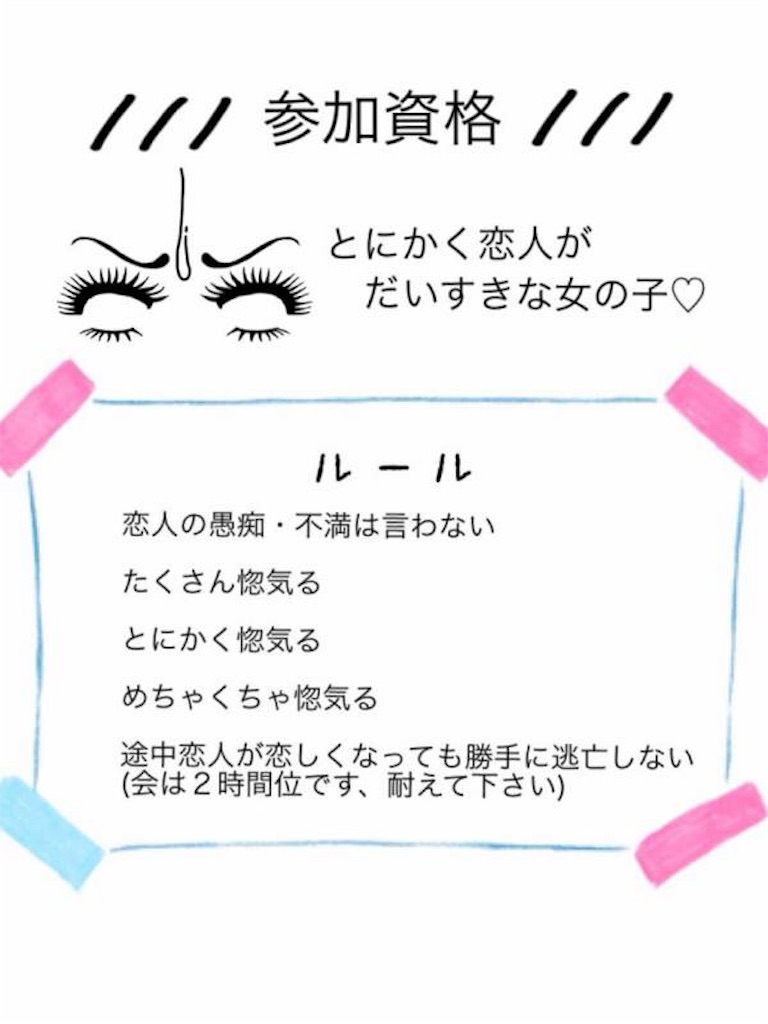 参加資格
とにかく恋人が
だいすきな女の子♡
ルール
恋人の愚痴・不満は言わない
たくさん惚気る
とにかく惚気る
めちゃくちゃ惚気る
途中恋人が恋しくなっても勝手に逃亡しない
(会は２時間位です、耐えて下さい)